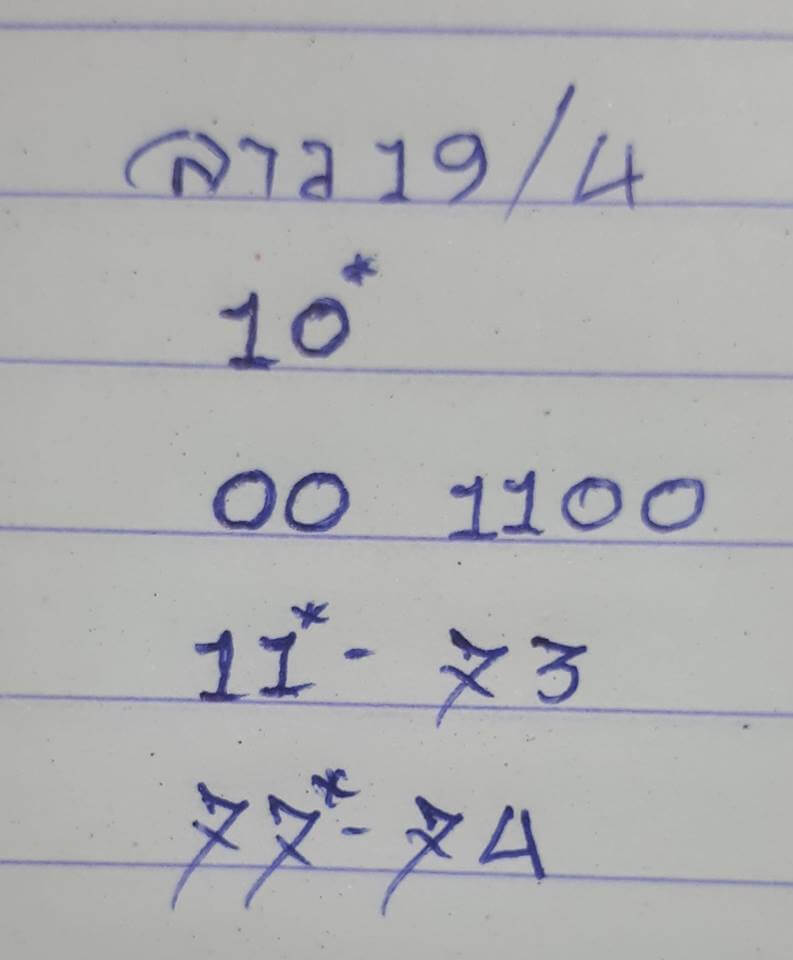 ลาว 19/4
10*
00 1100
11* - 73
77* - 74